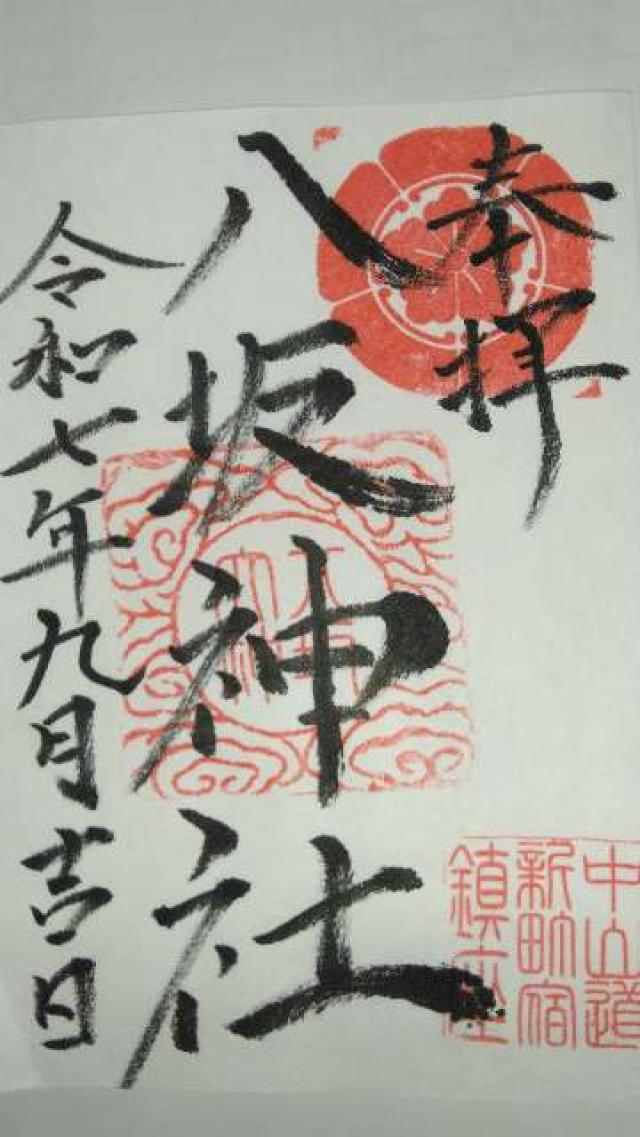 奉拝
八坂神社
令和七年九月吉日
中山道
新町宿
鎮座